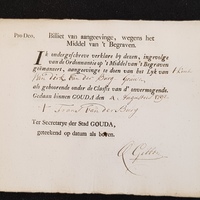 Pro-Deo.
Billiet van aangeevinge, wegens het
Middel van 't Begraven.
Ik ondergeschreve verklare by deezen, ingevolge
van de Ordonnantie op 't Middel van 't Begraven
geëmaneert, aangeevinge te doen van het Lyk van
van der Burg
als gehoorende onder de Classis van d' onvermogende.
Gedaan binnen GOUDA den 4 Augustus
van der Burg
Ter Secretarye der Stad GOUDA,
getekend op datum als boven.